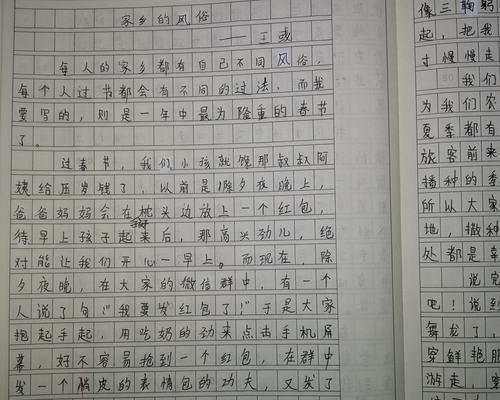 家乡的风俗
每人的家乡都有自己不同风俗，
每个人过节都会有不同的过法，而我
要写的，则是一年中最为隆重的春节
了。
过春节，我们小孩就馋那叔叔阿
姨给压岁钱了，以前是除夕夜晚上，
爸爸妈妈会在枕头边放上一个红包，
待早上孩子起来后，那高兴劲儿，绝
对能让我们开心一早上。而现在，除
夕夜晚，在大家的微信群中，有一个
人说了句“我要发红包了！”于是大家
抱起手起，用吃奶的劲来点击手机屏
幕，好不容易抢到一个红包，在群中
发一个俏皮的表情包的功夫，又发了
像三鞠躬
起，把我
寸慢慢走
我们
为我们农
夏季都有
放客前来
播种的季
所以大家
地，撒种
处都是幸
说完
吧！说到
舞龙了，
穿鲜艳服
游走，